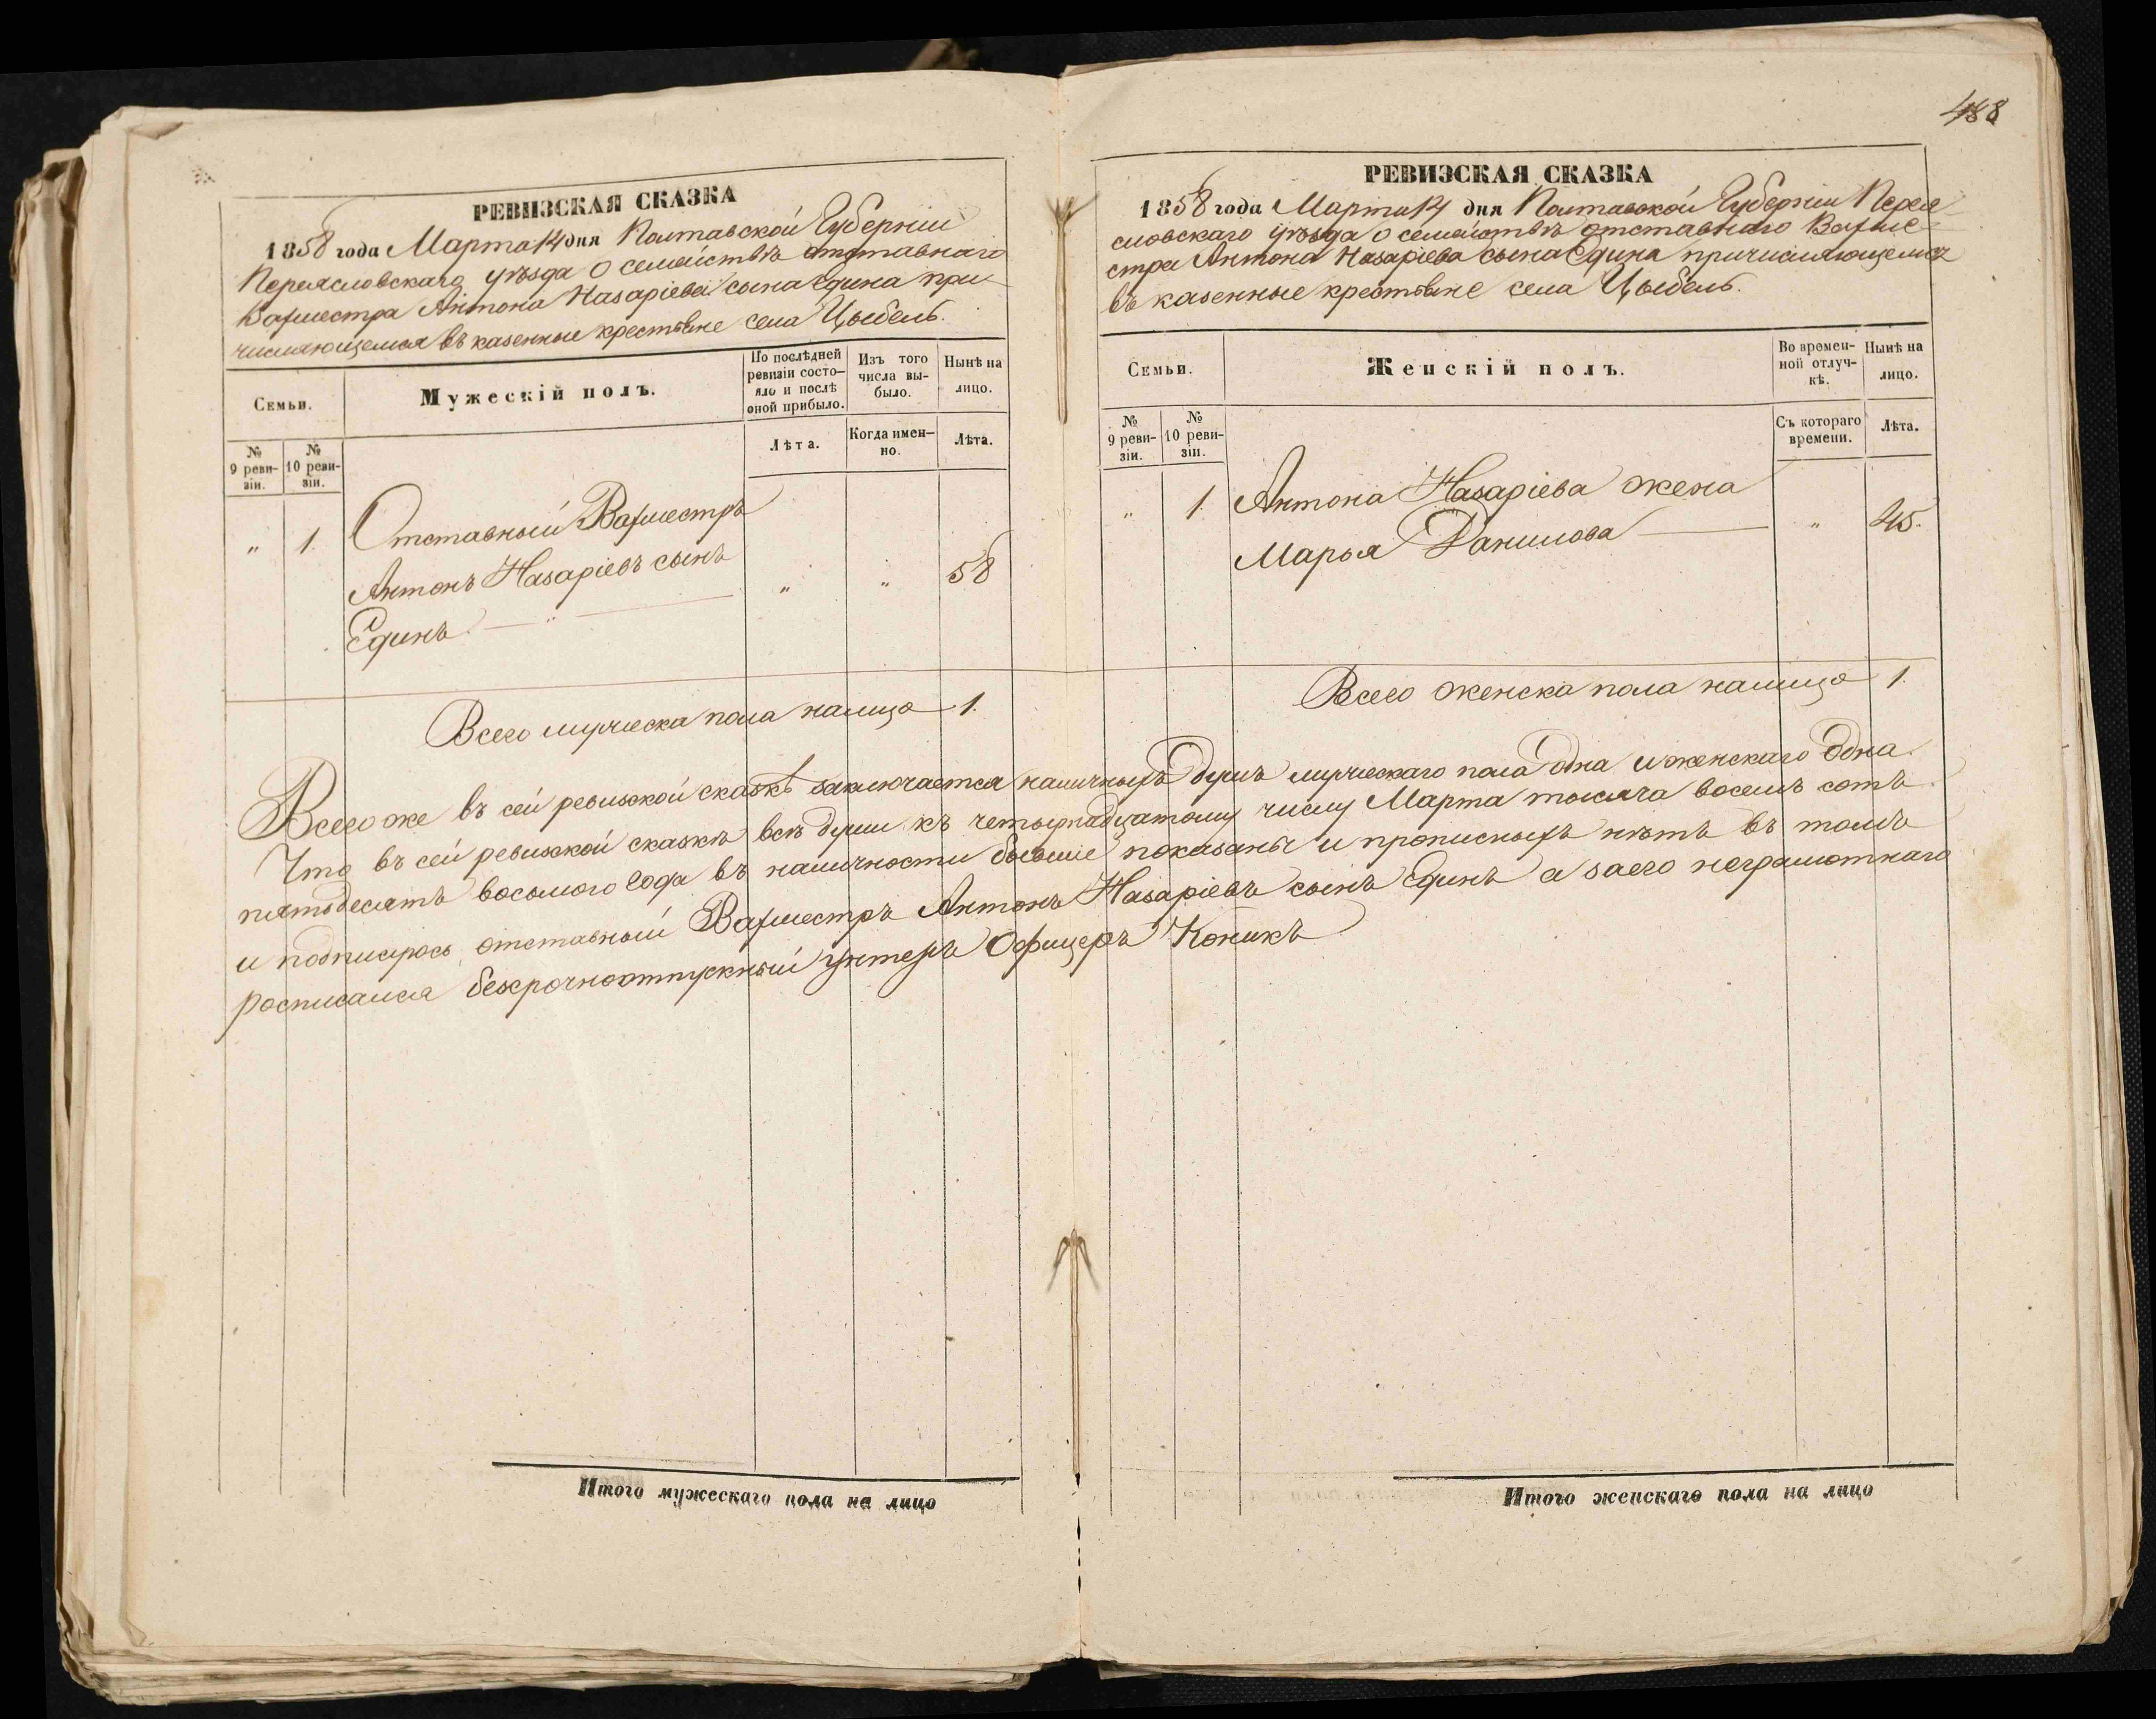 РЕВИЗСКАЯ СКАЗКА
1858 года Марта 14 дня Полтавской Губерніи
Переясловскаго уѣзда о семействѣ отставнаго
Вахместра Антона Назаріева сына Едина при-
числяющемся въ казенные крестьяне села Цыбель.
Семьи.
Мужескій полъ.
По послѣдней ревизіи состо-
яло и послѣ оной прибыло.
Изъ того числа вы-
было.
Нынѣ на лицо.
№ 9 реви-
зіи.
№ 10 реви-
зіи.
Лѣта.
Когда имен-
но.
Лѣта.
" 1. Отставный Вахместръ
Антонъ Назаріевъ сынъ " " 58
Единъ. — " —
Всего мужеска пола налицо 1.
488
РЕВИЗСКАЯ СКАЗКА
1858 года Марта 14 дня Полтавской Губерніи Перея-
словскаго уѣзда о семействѣ отставнаго Вахме-
стра Антона Назаріева сына Едина причисляющемся
въ казенные крестьяне села Цыбель.
Семьи.
Женскій полъ.
Во времен-
ной отлуч-
кѣ.
Нынѣ на лицо.
№ 9 реви-
зіи.
№ 10 реви-
зіи.
Съ котораго времени.
Лѣта.
" 1. Антона Назаріева жена
Марья Данилова — " 45.
Всего женска пола налицо 1.
Всего же въ сей ревизской сказкѣ заключается наличныхъ душъ мужескаго пола одна и женскаго одна.
Что въ сей ревизской сказкѣ всѣ души къ четырнадцатому числу Марта тысяча восемъ сотъ
пятьдесятъ восьмого года въ наличности бывшіе показаны и прописныхъ нѣтъ въ томъ
и подписуюсь отставный Вахместръ Антонъ Назаріевъ сынъ Единъ а за его неграмотнаго
росписался безсрочноотпускный унтеръ Офицеръ Коникъ
Итого мужескаго пола на лицо
Итого женскаго пола на лицо